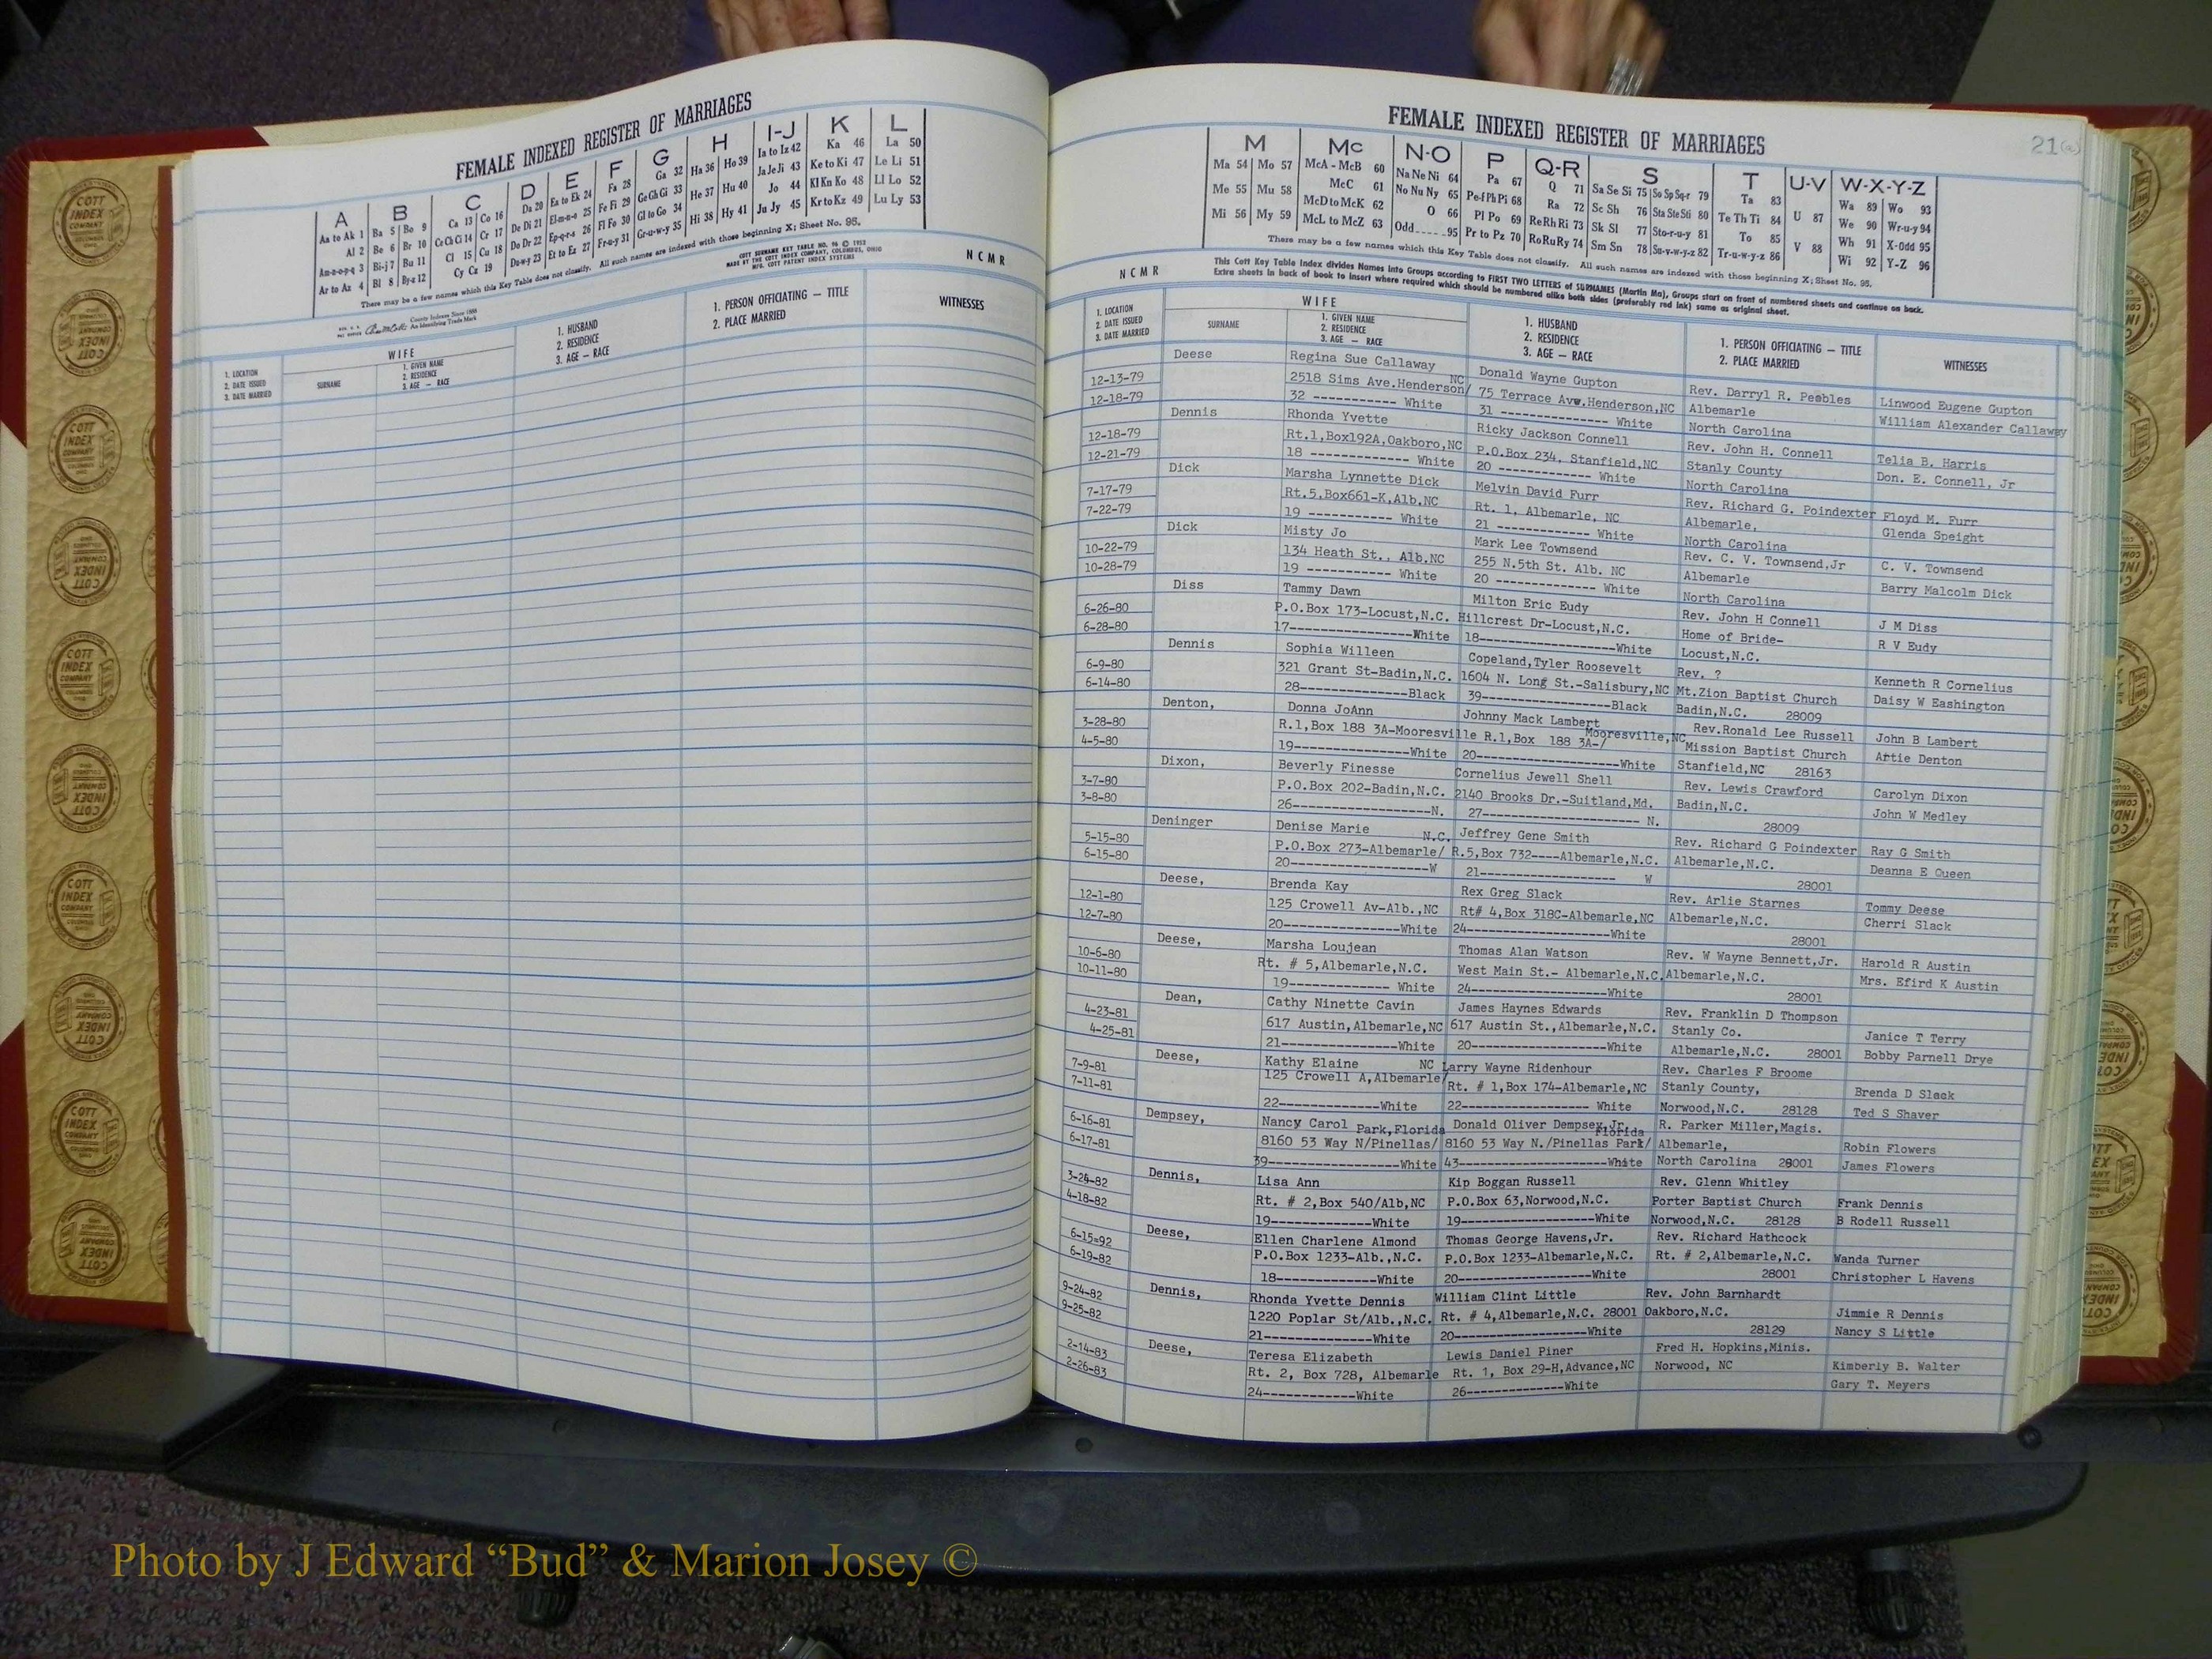 FEMALE INDEXED REGISTER OF MARRIAGES
A B C D E F G H I-J K L
Aa to Ak 1 Ba 5 Bo 9 Ca 13 Co 16 Da 20 Ea to Ek 24 Fa 28 Ga 32 Ha 36 Ho 39 Ia to Iz 42 Ka 46 La 50
Al 2 Be 6 Br 10 Ce Ch Ci 14 Cr 17 De Di 21 El-m-n-o 25 Fe Fi 29 Ge Gh Gi 33 He 37 Hu 40 Ja Je Ji 43 Ke to Ki 47 Le Li 51
Am-n-o-p-q 3 Bi-j 7 Bu 11 Cl 15 Cu 18 Do Dr 22 Ep-q-r-s 26 Fl Fo 30 Gl to Go 34 Hi 38 Hy 41 Jo 44 Kl Kn Ko 48 Ll Lo 52
Ar to Az 4 Bl 8 By-z 12 Cy Cz 19 Du-w-y 23 Et to Ez 27 Fr-u-y 31 Gr-u-w-y 35 Ju Jy 45 Kr to Kz 49 Lu Ly 53
There may be a few names which this Key Table does not classify. All such names are indexed with those beginning X; Sheet No. 95.
COTT SURNAME KEY TABLE NO. 96 © 1953
MADE BY THE COTT INDEX COMPANY, COLUMBUS, OHIO
MFG. COTT PATENT INDEX SYSTEMS
N C M R
County Indexes Since 1888
An Identifying Trade Mark
1. LOCATION
2. DATE ISSUED
3. DATE MARRIED
WIFE
SURNAME
1. GIVEN NAME
2. RESIDENCE
3. AGE — RACE
1. HUSBAND
2. RESIDENCE
3. AGE — RACE
1. PERSON OFFICIATING — TITLE
2. PLACE MARRIED
WITNESSES
FEMALE INDEXED REGISTER OF MARRIAGES
21(a)
M Mc N-O P Q-R S T U-V W-X-Y-Z
Ma 54 Mo 57 McA - McB 60 Na Ne Ni 64 Pa 67 Q 71 Sa Se Si 75 So Sp Sq-r 79 Ta 83 Wa 89 Wo 93
Me 55 Mu 58 McC 61 No Nu Ny 65 Pe-f Ph Pi 68 Ra 72 Sc Sh 76 Sta Ste Sti 80 Te Th Ti 84 U 87 We 90 Wr-u-y 94
Mi 56 My 59 McD to McK 62 O 66 Pl Po 69 Re Rh Ri 73 Sk Sl 77 Sto-r-u-y 81 To 85 V 88 Wh 91 X-Odd 95
McL to McZ 63 Odd.....95 Pr to Pz 70 Ro Ru Ry 74 Sm Sn 78 Su-v-w-y-z 82 Tr-u-w-y-z 86 Wi 92 Y-Z 96
There may be a few names which this Key Table does not classify. All such names are indexed with those beginning X; Sheet No. 95.
N C M R
This Cott Key Table Index divides Names into Groups according to FIRST TWO LETTERS of SURNAMES (Martin Ma), Groups start on front of numbered sheets and continue on back.
Extra sheets in back of book to insert where required which should be numbered alike both sides (preferably red ink) same as original sheet.
1. LOCATION
2. DATE ISSUED
3. DATE MARRIED
WIFE
SURNAME
1. GIVEN NAME
2. RESIDENCE
3. AGE — RACE
1. HUSBAND
2. RESIDENCE
3. AGE — RACE
1. PERSON OFFICIATING — TITLE
2. PLACE MARRIED
WITNESSES
Deese Regina Sue Callaway Donald Wayne Gupton Rev. Darryl R. Peebles Linwood Eugene Gupton
12-13-79 2518 Sims Ave.Henderson/NC 75 Terrace Avw.Henderson,NC Albemarle William Alexander Callaway
12-18-79 32 ----------- White 31 ------------- White North Carolina
Dennis Rhonda Yvette Ricky Jackson Connell Rev. John H. Connell Telia B. Harris
12-18-79 Rt.1,Box192A,Oakboro,NC P.O.Box 234, Stanfield,NC Stanly County Don. E. Connell, Jr
12-21-79 18 ------------- White 20 ----------- White North Carolina
Dick Marsha Lynnette Dick Melvin David Furr Rev. Richard G. Poindexter Floyd M. Furr
7-17-79 Rt.5,Box661-K,Alb.NC Rt. 1, Albemarle, NC Albemarle, Glenda Speight
7-22-79 19 ----------- White 21 ----------- White North Carolina
Dick Misty Jo Mark Lee Townsend Rev. C. V. Townsend,Jr C. V. Townsend
10-22-79 134 Heath St., Alb.NC 255 N.5th St. Alb. NC Albemarle Barry Malcolm Dick
10-28-79 19 ----------- White 20 ------------ White North Carolina
Diss Tammy Dawn Milton Eric Eudy Rev. John H Connell J M Diss
6-26-80 P.O.Box 173-Locust,N.C. Hillcrest Dr-Locust,N.C. Home of Bride- R V Eudy
6-28-80 17----------------White 18------------------White Locust,N.C.
Dennis Sophia Willeen Copeland,Tyler Roosevelt Rev. ? Kenneth R Cornelius
6-9-80 321 Grant St-Badin,N.C. 1604 N. Long St.-Salisbury,NC Mt.Zion Baptist Church Daisy W Eashington
6-14-80 28--------------Black 39-----------------Black Badin,N.C. 28009
Denton, Donna JoAnn Johnny Mack Lambert Rev.Ronald Lee Russell John B Lambert
3-28-80 R.1,Box 188 3A-Mooresville R.1,Box 188 3A-/Mooresville,NC Mission Baptist Church Artie Denton
4-5-80 19---------------White 20------------------White Stanfield,NC 28163
Dixon, Beverly Finesse Cornelius Jewell Shell Rev. Lewis Crawford Carolyn Dixon
3-7-80 P.O.Box 202-Badin,N.C. 2140 Brooks Dr.-Suitland,Md. Badin,N.C. John W Medley
3-8-80 26------------------N. 27-------------------- N. 28009
Deninger Denise Marie Jeffrey Gene Smith Rev. Richard G Poindexter Ray G Smith
5-15-80 P.O.Box 273-Albemarle/N.C. R.5,Box 732----Albemarle,N.C. Albemarle,N.C. Deanna E Queen
6-15-80 20------------------W 21------------------ W 28001
Deese, Brenda Kay Rex Greg Slack Rev. Arlie Starnes Tommy Deese
12-1-80 125 Crowell Av-Alb.,NC Rt# 4,Box 318C-Albemarle,NC Albemarle,N.C. Cherri Slack
12-7-80 20-----------------White 24------------------White 28001
Deese, Marsha Loujean Thomas Alan Watson Rev. W Wayne Bennett,Jr. Harold R Austin
10-6-80 Rt. # 5,Albemarle,N.C. West Main St.- Albemarle,N.C. Albemarle,N.C. Mrs. Efird K Austin
10-11-80 19------------- White 24------------------White 28001
Dean, Cathy Ninette Cavin James Haynes Edwards Rev. Franklin D Thompson
4-23-81 617 Austin,Albemarle,NC 617 Austin St.,Albemarle,N.C. Stanly Co. Janice T Terry
4-25-81 21---------------White 20------------------White Albemarle,N.C. 28001 Bobby Parnell Drye
Deese, Kathy Elaine Larry Wayne Ridenhour Rev. Charles F Broome
7-9-81 125 Crowell A,Albemarle/NC Rt. # 1,Box 174-Albemarle,NC Stanly County, Brenda D Slack
7-11-81 22---------------White 22----------------- White Norwood,N.C. 28128 Ted S Shaver
Dempsey, Nancy Carol Donald Oliver Dempsey,Jr. R. Parker Miller,Magis.
6-16-81 8160 53 Way N/Pinellas/Park,Florida 8160 53 Way N./Pinellas Park/Florida Albemarle, Robin Flowers
6-17-81 39------------------White 43------------------White North Carolina 28001 James Flowers
Dennis, Lisa Ann Kip Boggan Russell Rev. Glenn Whitley
3-26-82 Rt. # 2,Box 540/Alb,NC P.O.Box 63,Norwood,N.C. Porter Baptist Church Frank Dennis
4-18-82 19---------------White 19------------------White Norwood,N.C. 28128 B Rodell Russell
Deese, Ellen Charlene Almond Thomas George Havens,Jr. Rev. Richard Hathcock
6-15=92 P.O.Box 1233-Alb.,N.C. P.O.Box 1233-Albemarle,N.C. Rt. # 2,Albemarle,N.C. Wanda Turner
6-19-82 18-------------White 20------------------White 28001 Christopher L Havens
Dennis, Rhonda Yvette Dennis William Clint Little Rev. John Barnhardt
9-24-82 1220 Poplar St/Alb.,N.C. Rt. # 4,Albemarle,N.C. 28001 Oakboro,N.C. Jimmie R Dennis
9-25-82 21---------------White 20------------------White 28129 Nancy S Little
Deese, Teresa Elizabeth Lewis Daniel Piner Fred H. Hopkins,Minis.
2-14-83 Rt. 2, Box 728, Albemarle Rt. 1, Box 29-H,Advance,NC Norwood, NC Kimberly B. Walter
2-26-83 24-------------White 26--------------White Gary T. Meyers
COTT
INDEX
COMPANY
Photo by J Edward “Bud” & Marion Josey ©